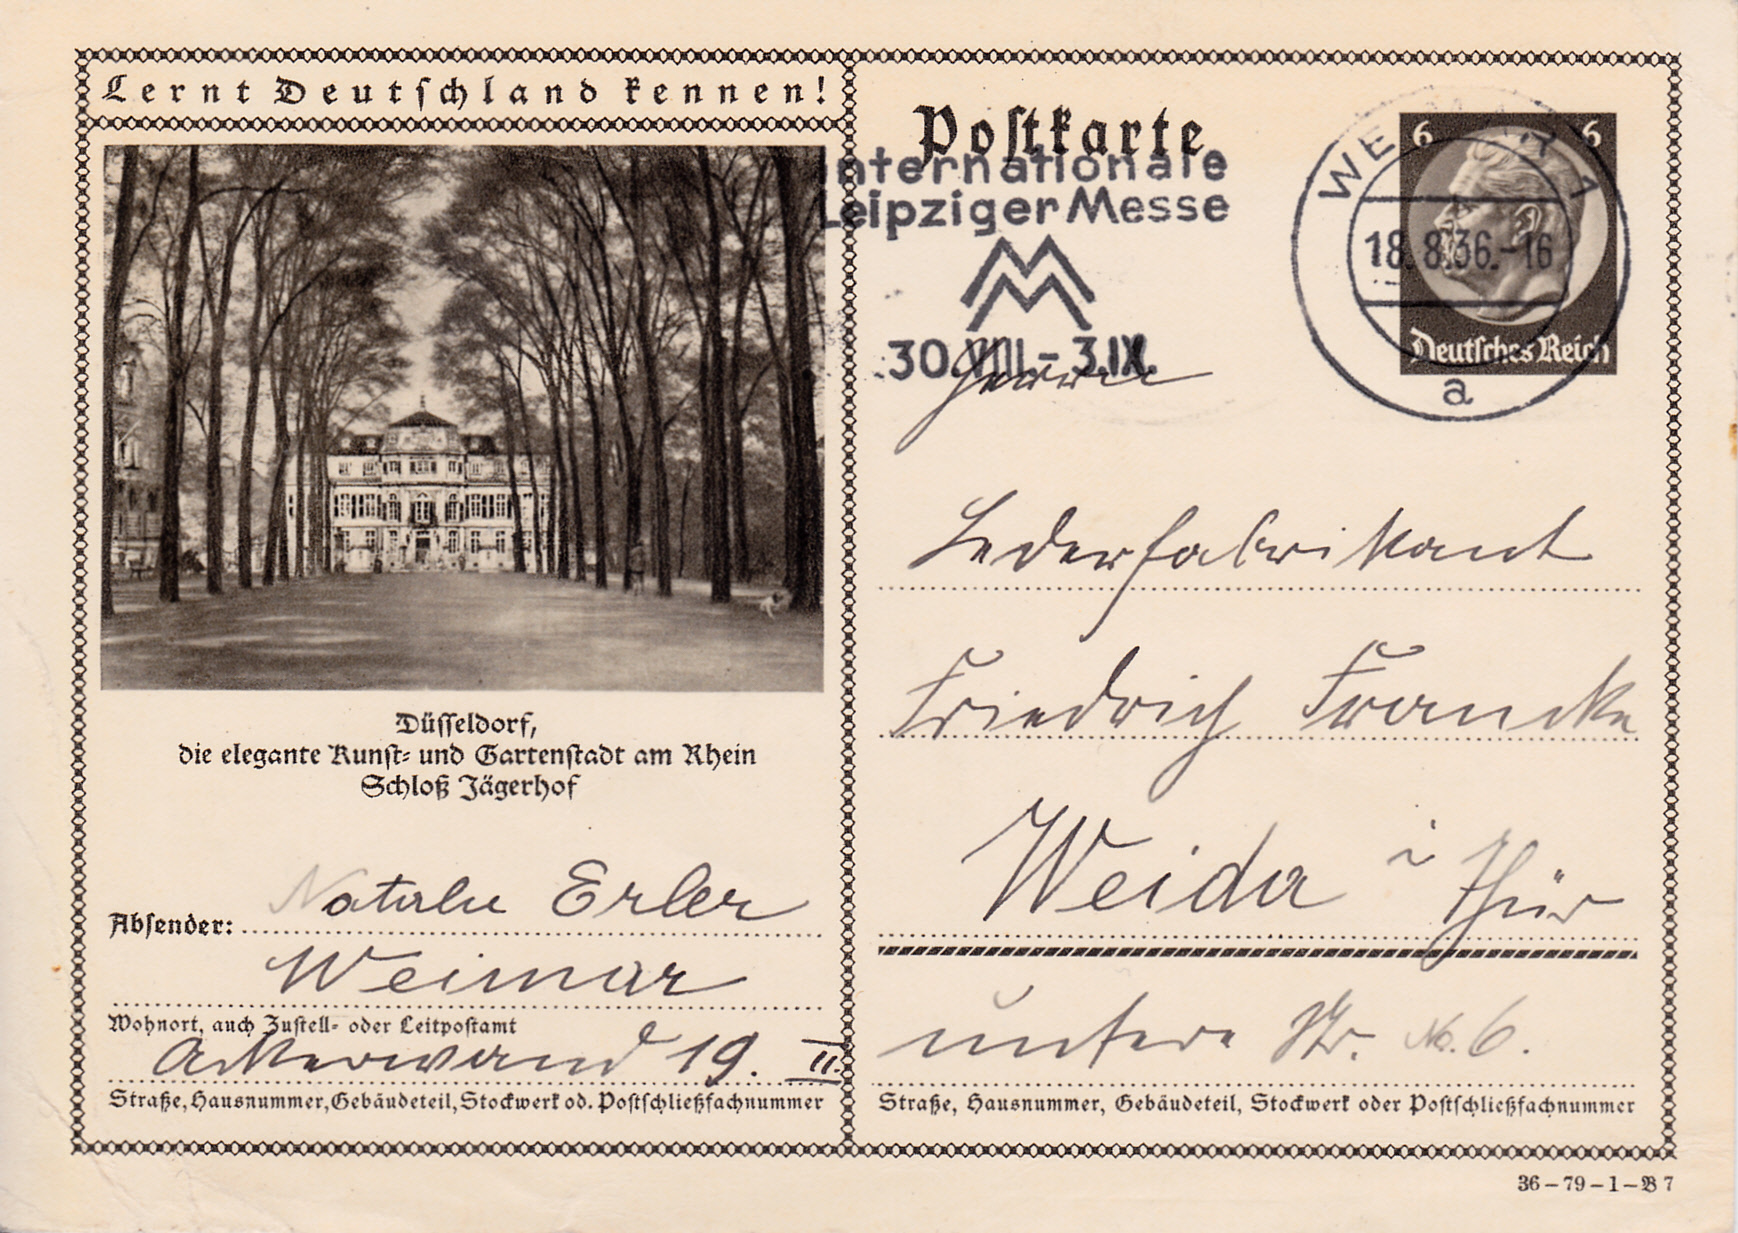 Lernt Deutschland kennen!
Düsseldorf,
die elegante Kunst- und Gartenstadt am Rhein
Schloß Jägerhof
Absender: Natalie Erler
Weimar
Wohnort, auch Zustell- oder Leitpostamt
Ackerwand 19. II.
Straße, Hausnummer, Gebäudeteil, Stockwerk od. Postschließfachnummer
Postkarte
Internationale
Leipziger Messe
30.VIII.-3.IX.
WEIMAR 1
18.8.36.-16
a
6 6
Deutsches Reich
Herrn
Lederfabrikant
Friedrich Francke
Weida i Thür
untere Str. No. 6.
Straße, Hausnummer, Gebäudeteil, Stockwerk oder Postschließfachnummer
36-79-1-B 7